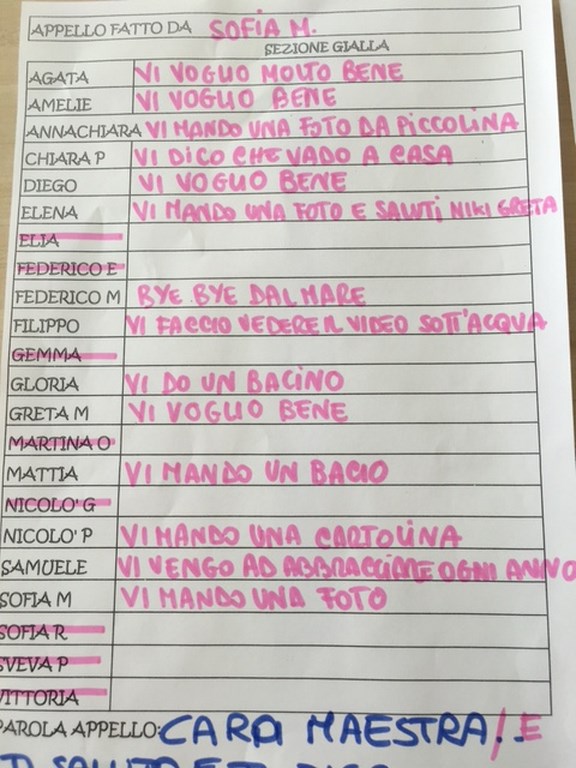 APPELLO FATTO DA SOFIA M.
SEZIONE GIALLA
AGATA VI VOGLIO MOLTO BENE
AMELIE VI VOGLIO BENE
ANNACHIARA VI MANDO UNA FOTO DA PICCOLINA
CHIARA P VI DICO CHE VADO A CASA
DIEGO VI VOGLIO BENE
ELENA VI MANDO UNA FOTO E SALUTI NIKI GRETA
ELIA
FEDERICO E
FEDERICO M BYE BYE DAL MARE
FILIPPO VI FACCIO VEDERE IL VIDEO SOTT'ACQUA
GEMMA
GLORIA VI DO UN BACINO
GRETA M VI VOGLIO BENE
MARTINA O
MATTIA VI MANDO UN BACIO
NICOLO' G
NICOLO' P VI MANDO UNA CARTOLINA
SAMUELE VI VENGO AD ABBRACCIARE OGNI ANNO
SOFIA M VI MANDO UNA FOTO
SOFIA R
SVEVA P
VITTORIA
PAROLA APPELLO: CARA MAESTRA/E
TI SALUTO E TI DICO